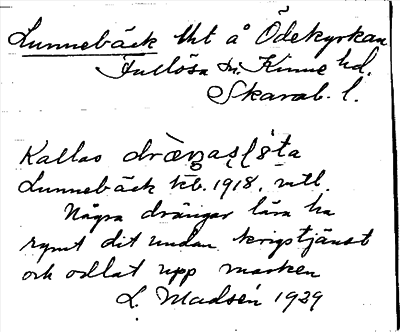 Lunnebäck tht å Ödekyrkan
Fullösa sn. Kinne hd.
Skarab. l.
Kallas
Lunnebäck kb. 1918.
Några drängar lära ha
rymt dit undan krigstjänst
och odlat upp marken
L. Madsén 1929